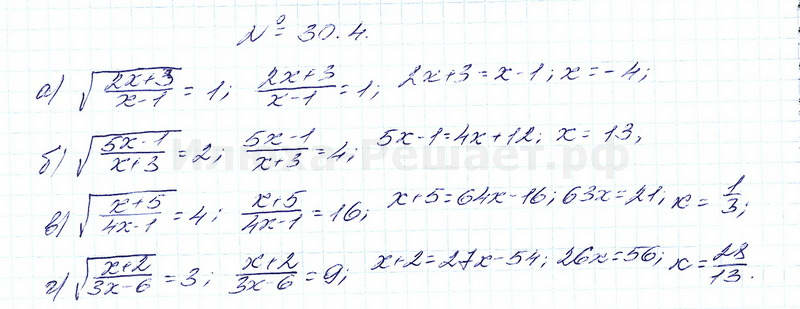 № 30.4.
а) √((2x+3)/(x-1)) = 1; (2x+3)/(x-1) = 1; 2x+3 = x-1; x = -4;
б) √((5x-1)/(x+3)) = 2; (5x-1)/(x+3) = 4; 5x-1 = 4x+12; x = 13,
Илюха-Решает.рф
в) √((x+5)/(4x-1)) = 4; (x+5)/(4x-1) = 16; x+5 = 64x-16; 63x = 21; x = 1/3;
г) √((x+2)/(3x-6)) = 3; (x+2)/(3x-6) = 9; x+2 = 27x-54; 26x = 56; x = 28/13.